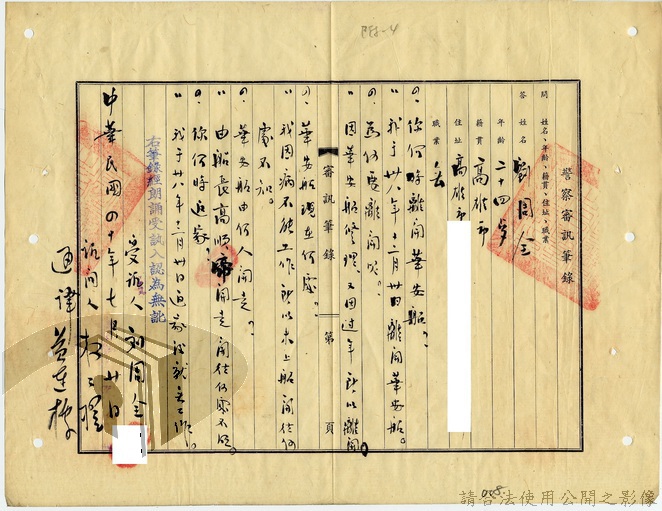 警察審訊筆錄
問 姓名、年齡、籍貫、住址、職業
答 姓名 劉同金
年齡 二十四歲
籍貫 高雄市
住址 高雄市
職業 無
問、你何時離開華安船?
答 我于卅八年十二月廿日離開華安船。
問、為何要離開呢。
答 因華安船修理、又因過年所以離開。
審訊筆錄 第 頁
問、華安船現在何處?
答 我因病不能工作所以未上船開往何
處不知。
問、華安船由何人開走?
答 由船長高順帝開走開往何處不明。
問、你何時返家?
答 我于卅八年十二月廿日返家後就無工作。
右筆錄經朗誦受訊人認為無訛
受訊人 劉同金
訊問人
通譯
中華民國四十年七月廿日
請合法使用公開之影像